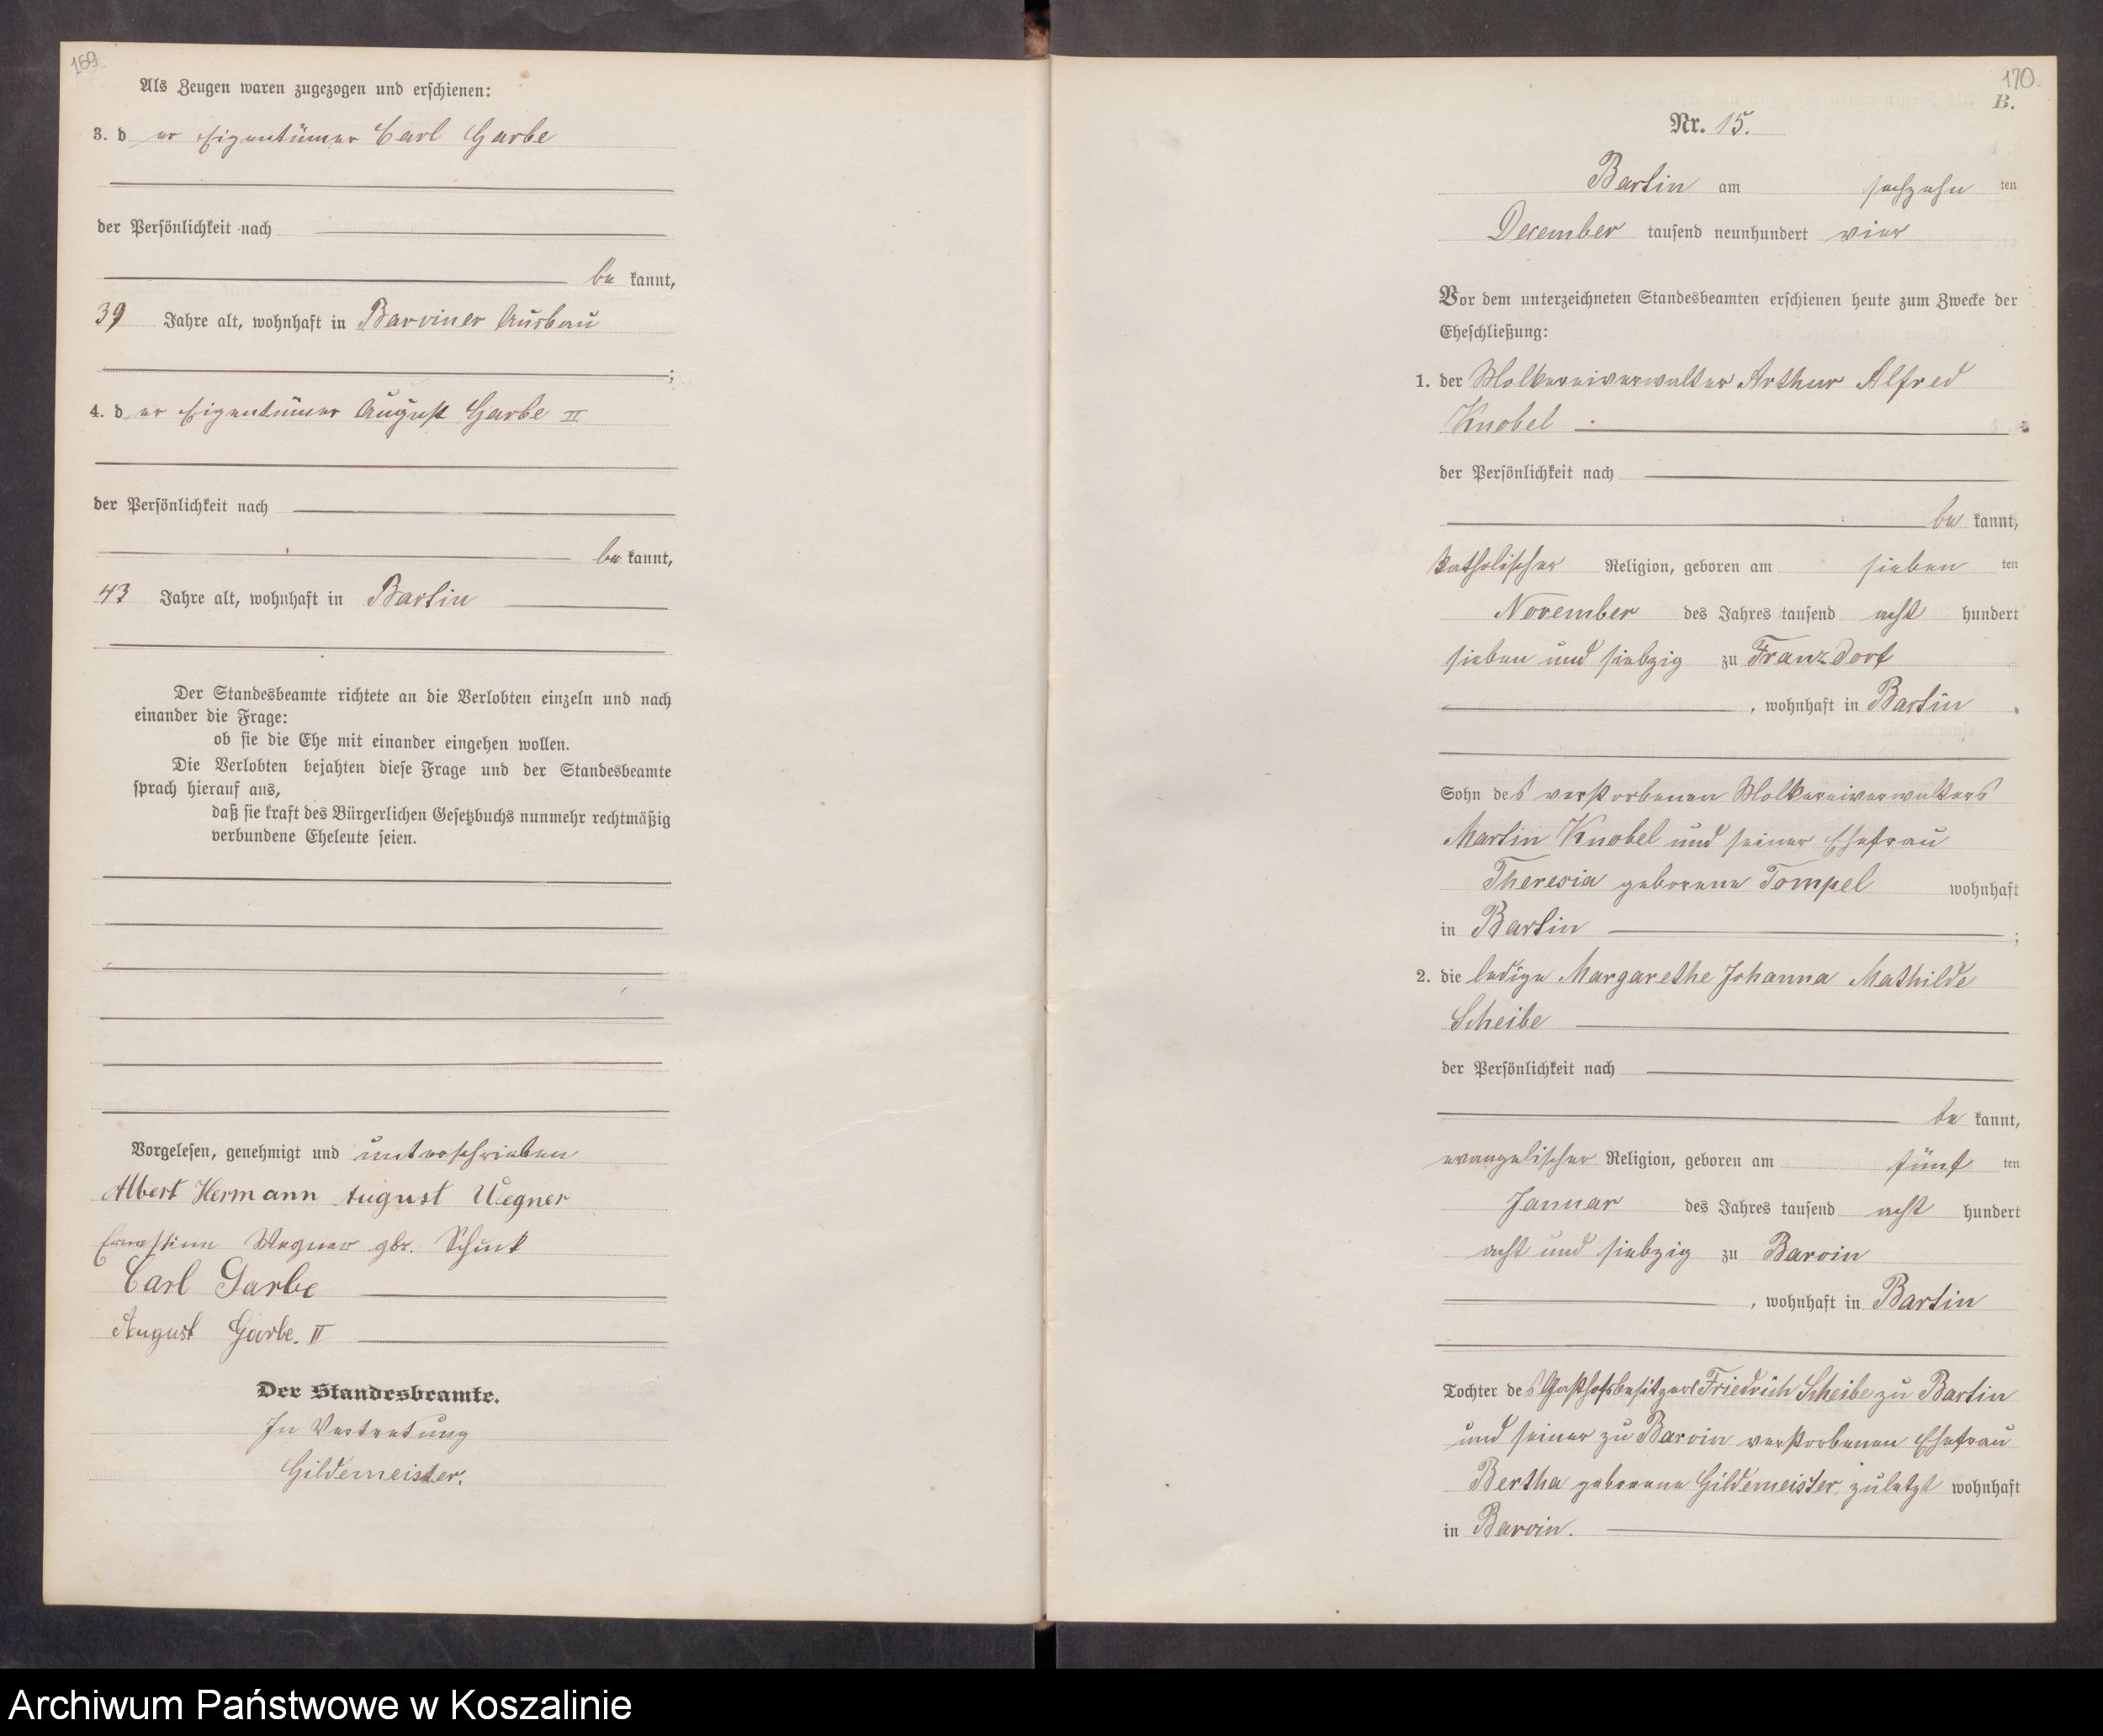 169.
Als Zeugen waren zugezogen und erschienen:
3. d er Eigentümer Carl Garbe
der Persönlichkeit nach
be kannt,
39 Jahre alt, wohnhaft in Barviner Ausbau
;
4. d er Eigentümer August Garbe II
der Persönlichkeit nach
be kannt,
43 Jahre alt, wohnhaft in Bartin
Der Standesbeamte richtete an die Verlobten einzeln und nach
einander die Frage:
ob sie die Ehe mit einander eingehen wollen.
Die Verlobten bejahten diese Frage und der Standesbeamte
sprach hierauf aus,
daß sie kraft des Bürgerlichen Gesetzbuchs nunmehr rechtmäßig
verbundene Eheleute seien.
Vorgelesen, genehmigt und unterschrieben
Albert Hermann August Wegner
Ernestine Wegner gbr. Schink
Carl Garbe
August Garbe. II
Der Standesbeamte.
In Vertretung
Gildemeister.
170.
B.
Nr. 15.
Bartin am sechzehn ten
December tausend neunhundert vier
Vor dem unterzeichneten Standesbeamten erschienen heute zum Zwecke der
Eheschließung:
1. der Molkereiverwalter Arthur Alfred
Knobel
der Persönlichkeit nach
be kannt,
katholischer Religion, geboren am sieben ten
November des Jahres tausend acht hundert
sieben und siebzig zu Franzdorf
, wohnhaft in Bartin
Sohn des verstorbenen Molkereiverwalters
Martin Knobel und seiner Ehefrau
Theresia geborene Tompel wohnhaft
in Bartin ;
2. die ledige Margarethe Johanna Mathilde
Scheibe
der Persönlichkeit nach
be kannt,
evangelischer Religion, geboren am fünf ten
Januar des Jahres tausend acht hundert
acht und siebzig zu Barvin
, wohnhaft in Bartin
Tochter des Gasthofsbesitzers Friedrich Scheibe zu Bartin
und seiner zu Barvin verstorbenen Ehefrau
Bertha geborene Gildemeister, zuletzt wohnhaft
in Barvin.
Archiwum Państwowe w Koszalinie